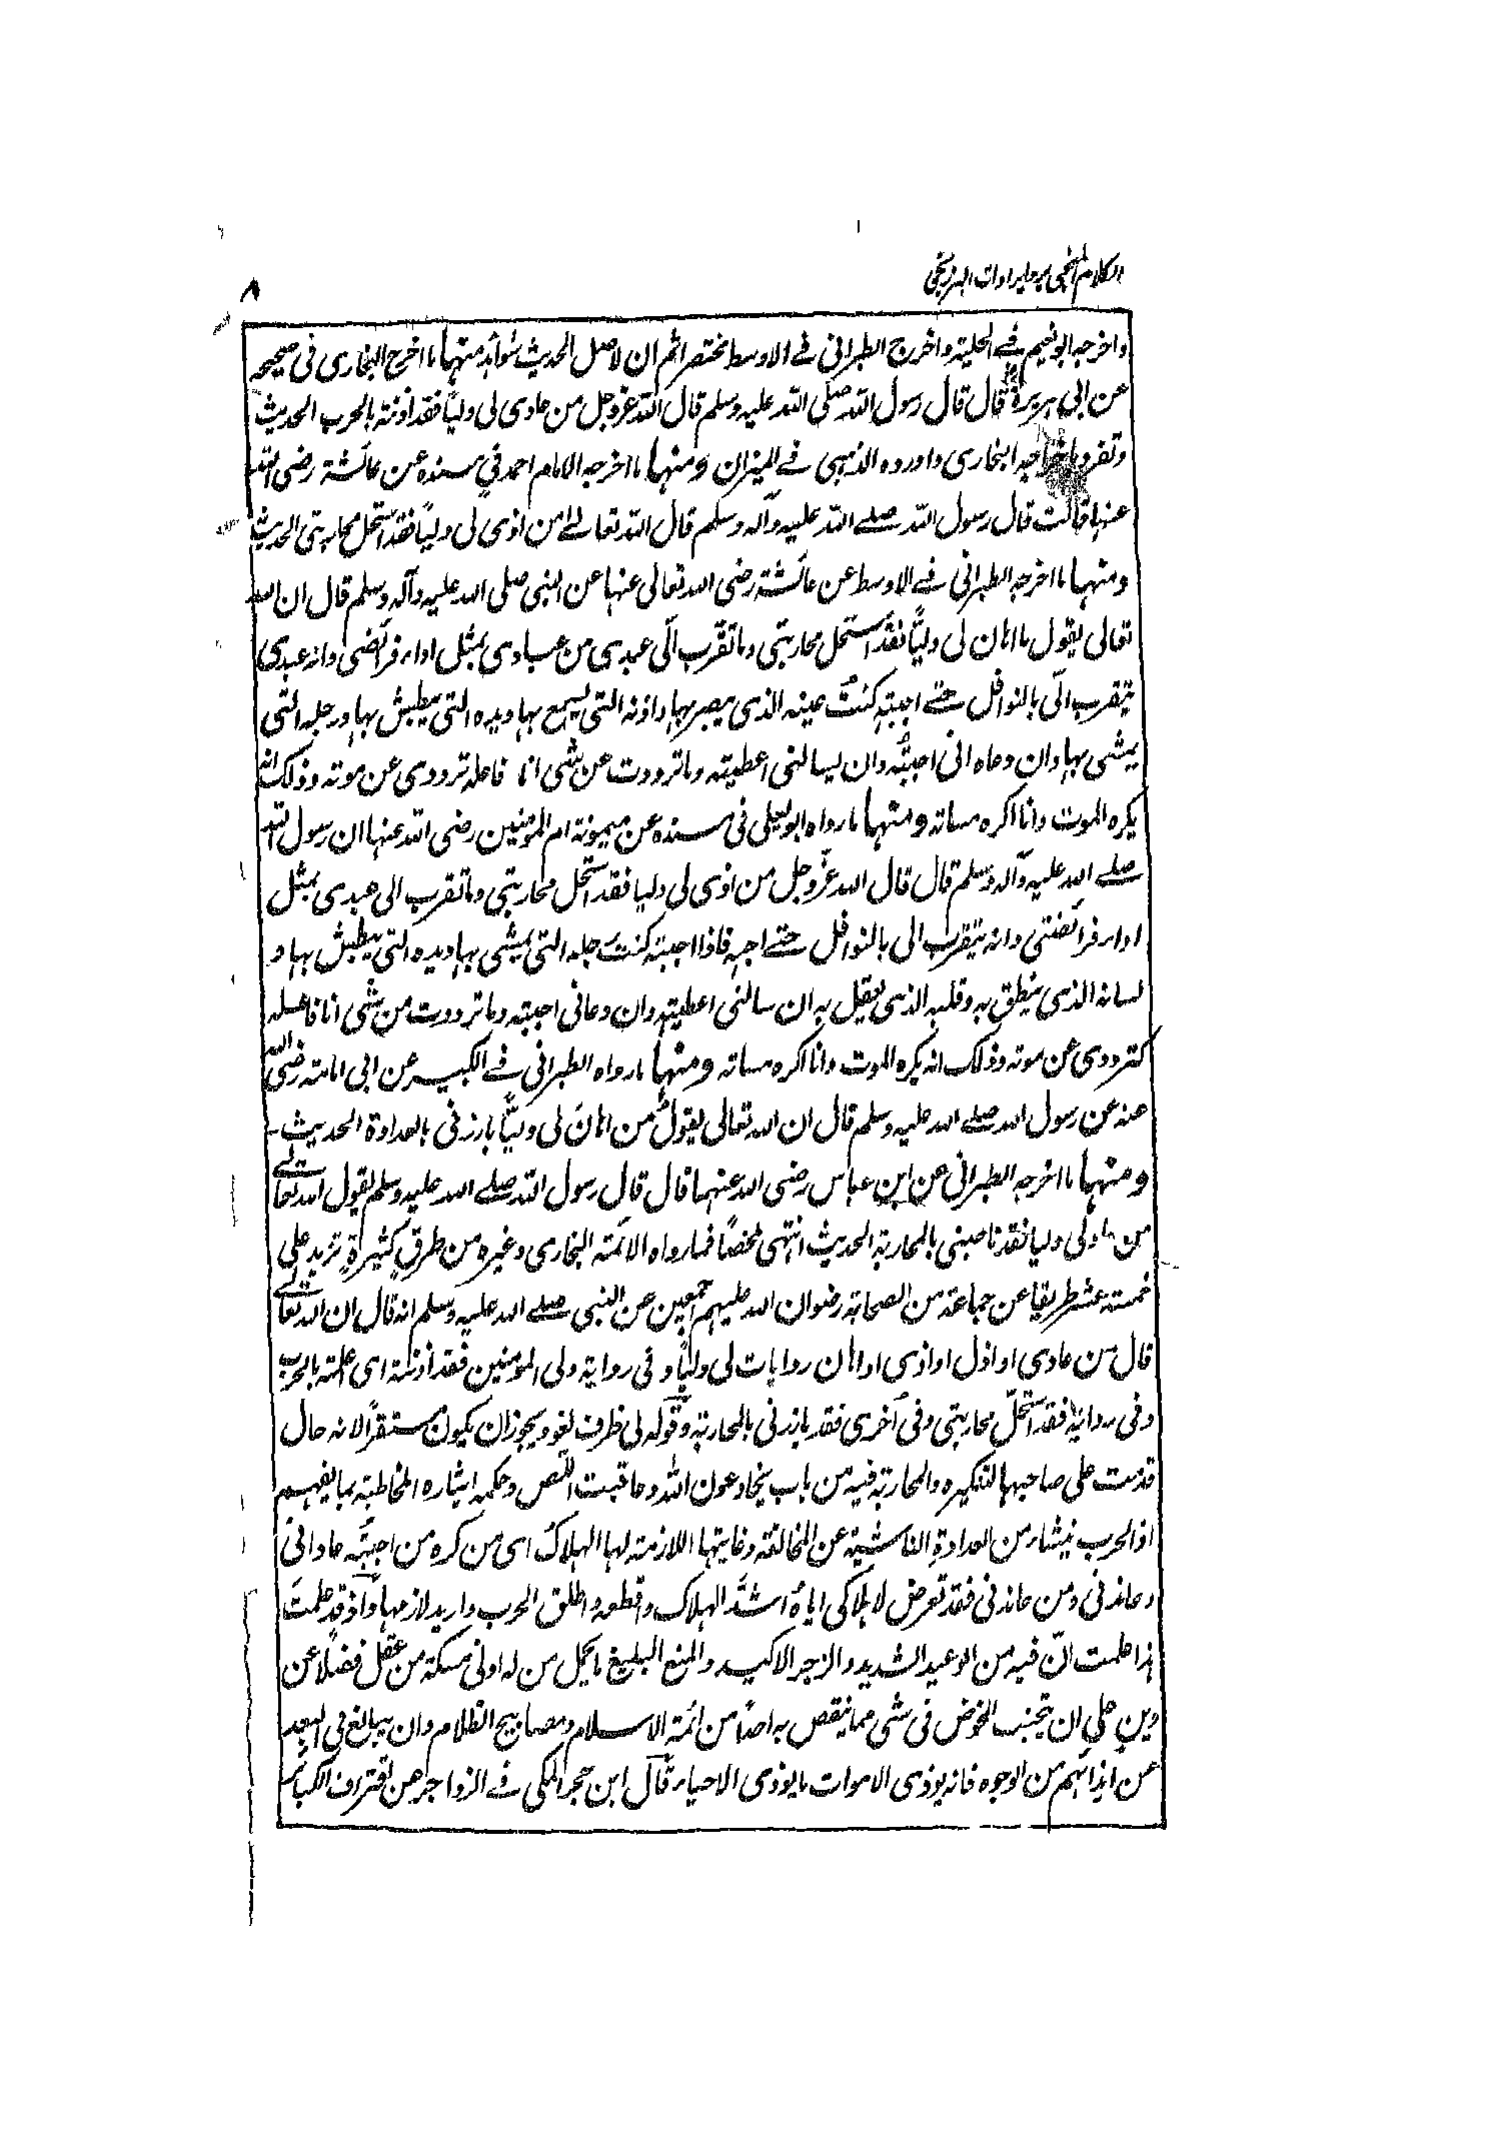 الكلام المنجي برد ايرادات البرزنجي
٨
واخرجه ابو نعيم في الحلية واخرج الطبراني في الاوسط مختصرا ثم ان لاصل الحديث شواهد منها ما اخرج البخاري في صحيحه
عن ابي هريرة قال قال رسول الله صلى الله عليه وسلم قال الله عز وجل من عادى لي وليا فقد آذنته بالحرب الحديث
وتفرد باخراجه البخاري واورده الذهبي في الميزان ومنها ما اخرجه الامام احمد في مسنده عن عائشة رضى الله
عنها قالت قال رسول الله صلے الله عليه وآله وسلم قال الله تعالے من اذى لي وليا فقد استحل محاربتي الحديث
ومنها ما اخرجه الطبراني في الاوسط عن عائشة رضى الله تعالى عنها عن النبي صلى الله عليه وآله وسلم قال ان الله
تعالى يقول من اهان لي وليّا فقد استحل محاربتي وما تقرب الّي عبدي من عبادي بمثل اداء فرائضي وانه عبدي
يتقرب الّي بالنوافل حتے احببته كنت عينه الذى يبصر بها واذنه التى يسمع بها ويده التى يبطش بها ورجله التى
يمشى بها وان دعاه انى اجبته وان يسالنى اعطيته وما ترددت عن شى انا فاعله ترددى عن موته وذلك انه
يكره الموت وانا اكره مساته ومنها ما رواه ابو يعلى فى مسنده عن ميمونة ام المؤمنين رضى الله عنها ان رسول الله
صلے الله عليه وآله وسلم قال قال الله عزّ وجل من اذى لى وليا فقد استحل محاربتى وما تقرب الى عبدى بمثل
اداء فرائضى وانه يتقرب الى بالنوافل حتے احبه فاذا احببته كنت رجله التى يمشى بها ويده التى يبطش بها و
لسانه الذى ينطق به وقلبه الذى يعقل به ان سالنى اعطيته وان دعانى اجبته وما ترددت من شى انا فاعله
كترددى عن موته وذلك انه يكره الموت وانا اكره مساته ومنها ما رواه الطبرانى فے الكبير عن ابى امامة رضى الله
عنه عن رسول الله صلے الله عليه وسلم قال ان الله تعالى يقول من اهان لى وليّا بارزنى بالعداوة الحديث
ومنها ما اخرجه الطبرانى عن ابن عباس رضى الله عنهما قال قال رسول الله صلے الله عليه وسلم يقول الله تعالے
من عادى لى وليا فقد ناصبنى بالمحاربة الحديث انتهى ملخصًا فما رواه الائمة البخارى وغيره من طرق كثيرة تزيد على
خمسة عشر طريقا عن جماعة من الصحابة رضوان الله عليهم اجمعين عن النبى صلے الله عليه وسلم انه قال ان الله تعالے
قال من عادى او اذل او اذى او اهان روايات لى وليًّا وفى رواية ولى المؤمنين فقد اذنته اى علمته بالحرب
وفى رواية فقد استحلّ محاربتى وفى اخرى فقد بارزنى بالمحاربة وقوله لى ظرف لغو ويجوز ان يكون مستقرًا لانه حال
قدمت على صاحبها لتنكيره والمحاربة فيه من باب يخادعون الله وعاقبت اللص وحكمة ايثاره المخاطبة بما يفهم
اذ الحرب ينشاء من العداوة الناشية عن المخالفة وغايتها اللازمة لها الهلاك اى من كره من احببته عادانى
وعاندنى ومن عاندنى فقد تعرض لاهلاكى اياه اشدّ الهلاك واقطعه واطلق الحرب واريد لازمها واذ قد علمت
هذا علمت انّ فيه من الوعيد الشديد والزجر الاكيد والمنع البليغ ما يحمل من له ادنى مسكة من عقل فضلًا عن
دين على ان يتجنب الخوض فى شى مما ينقص به احدًا من ائمة الاسلام ومصابيح الظلام وان يبالغ فى البعد
عن ايذائهم من الوجوه فانه يوذى الاموات ما يوذى الاحياء قال ابن حجر المكى فے الزواجر عن اقتراف الكبائر